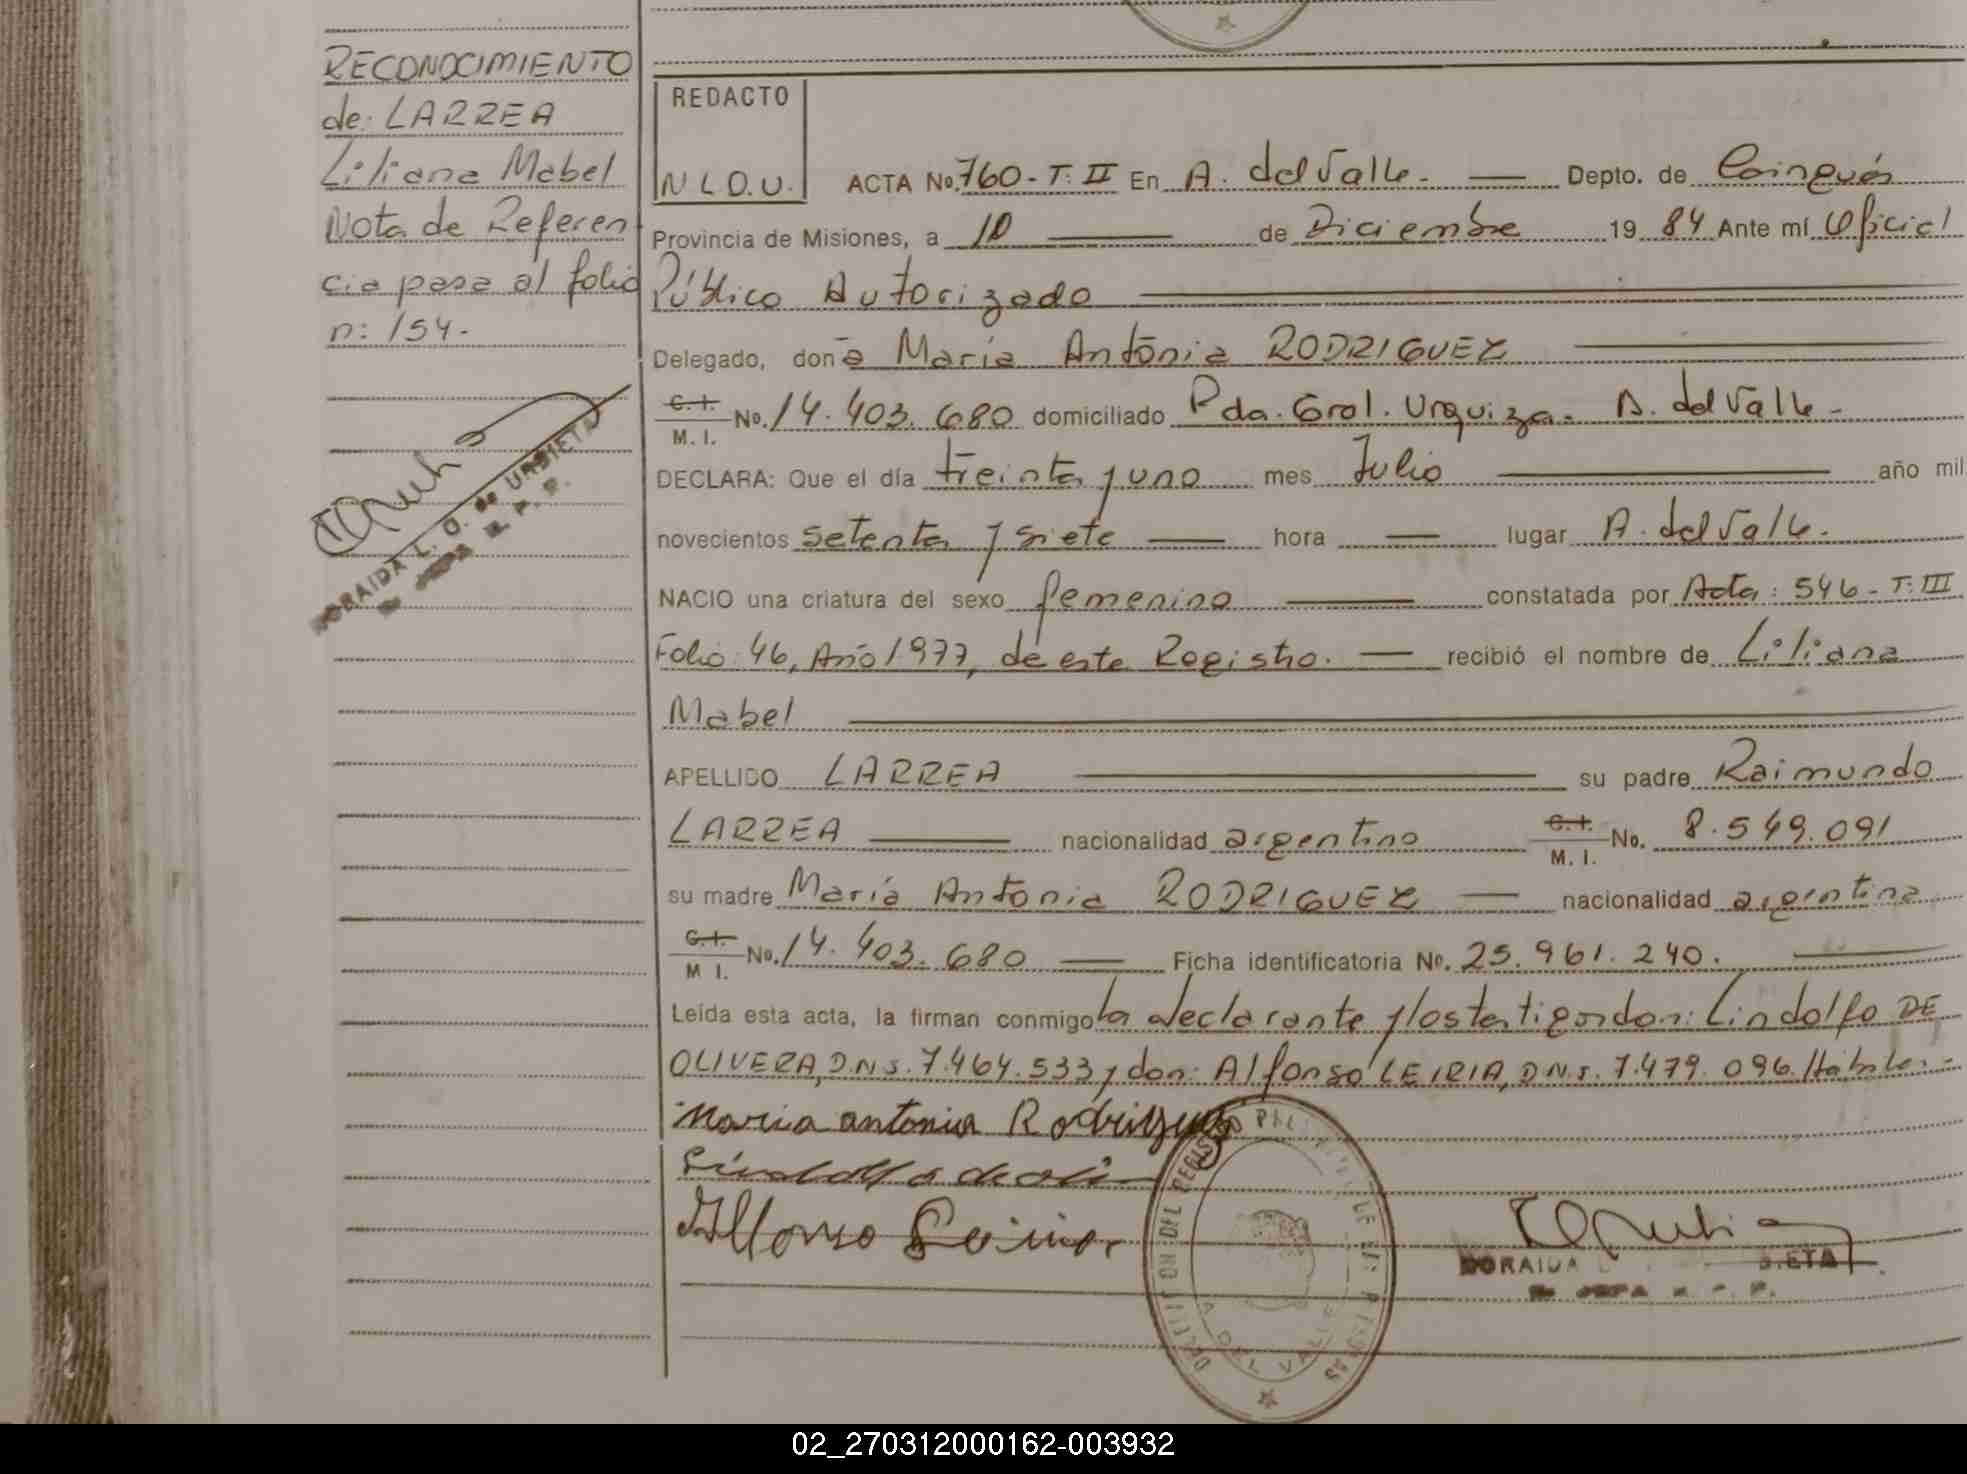 RECONOCIMIENTO
de: LARREA
Liliana Mabel
Nota de Referen
cia pasa al folio
n: 154.
REDACTO
N L O. U.
ACTA No. 760 - T: II En A. del Valle. — Depto. de Cainguás
Provincia de Misiones, a 10 — de Diciembre 19 84 Ante mí Oficial
Público Autorizado
Delegado, doña María Antonia RODRIGUEZ
C. I. M. I. No. 14.403.680 domiciliado Pda. Gral. Urquiza. A. del Valle -
DECLARA: Que el día treinta y uno mes Julio — año mil
novecientos setenta y siete — hora — lugar A. del Valle.
NACIO una criatura del sexo femenino — constatada por Acta: 546 - T: III
Folio: 46, Año 1977, de este Registro. — recibió el nombre de Liliana
Mabel
APELLIDO LARREA — su padre Raimundo
LARREA — nacionalidad argentino C. I. M. I. No. 8.549.091
su madre María Antonia RODRIGUEZ — nacionalidad argentina
C. I. M I. No. 14.403.680 — Ficha identificatoria No. 25.961.240. —
Leída esta acta, la firman conmigo la declarante y los testigos don: Lindolfo DE
OLIVERA, D.N.I. 7.464.533 y don: Alfonso LEIRIA, D.N.I. 7.479.096. Hábiles. -
Maria antonia Rodriguez
DORAIDA L. O. de URBIETA
DELEGACION DEL REGISTRO
A. DEL VALLE
DORAIDA
02_270312000162-003932